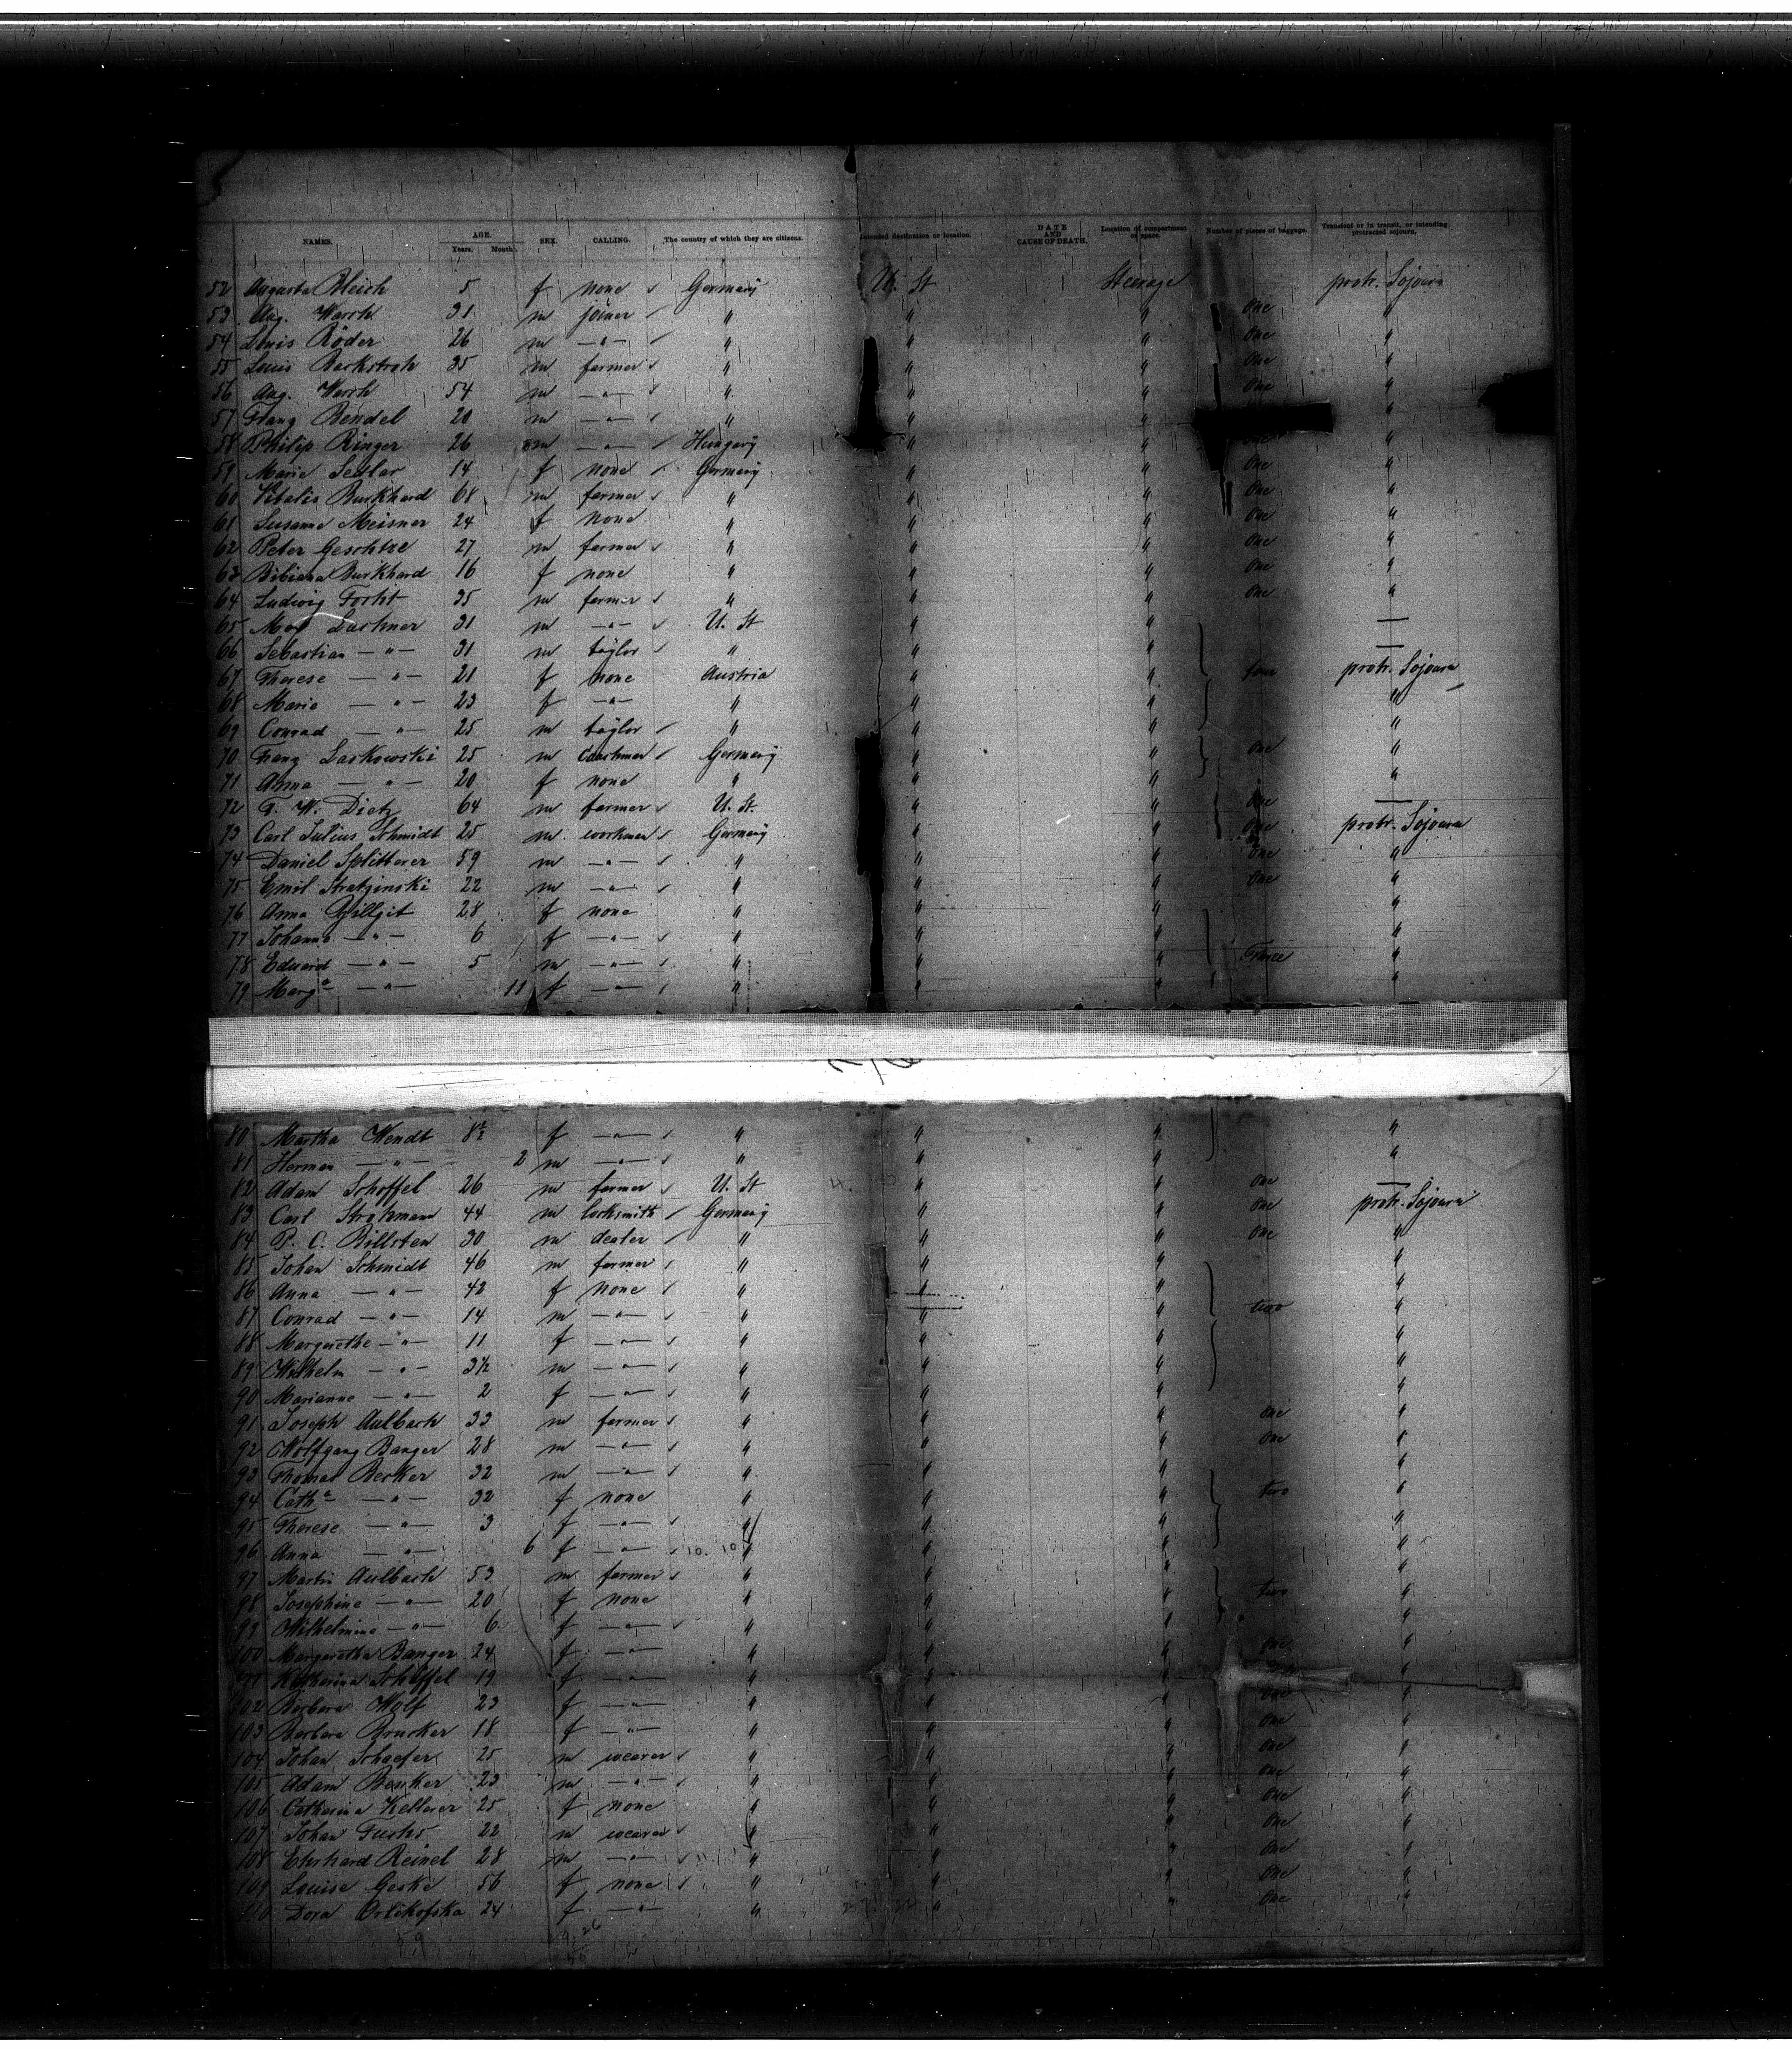 NAMES. AGE. Years. Months. SEX. CALLING. The country of which they are citizens. Intended destination or location. DATE AND CAUSE OF DEATH. Location of compartment or space. Number of pieces of baggage. Transient or in transit, or intending protracted sojourn.
52 Augusta Bleich 5 f none Germany U. St Steerage protr. Sojourn
53 Aug. Warth 31 m joiner " " " One "
54 Louis Röder 26 m —"— " " " One "
55 Louis Backstroh 35 m farmer " " " One "
56 Aug. Warth 54 m —"— " " " One "
57 Franz Bendel 20 m —"— " " " "
58 Philip Ringer 26 m —"— Hungary " " One "
59 Marie Sedlar 14 f none Germany " " One "
60 Vitalis Burkhard 68 m farmer " " " One "
61 Susanne Meisner 24 f none " " " One "
62 Peter 27 m farmer " " " One "
63 Bibiana Burkhard 16 f none " " " One "
64 Ludwig 35 m farmer " " " One "
65 Lachner 31 m —"— U. St " " —
66 Sebastian —"— 31 m taylor " " " —
67 Therese —"— 21 f none Austria " " four protr. Sojourn
68 Marie —"— 23 f —"— " " " "
69 Conrad —"— 25 m taylor " " " "
70 Franz Laskowski 25 m Coachman Germany " " One "
71 Anna —"— 20 f none " " " "
72 F. W. Dietz 64 m farmer U. St. " " One —
73 Carl Julius Schmidt 25 m workman Germany " " One protr. Sojourn
74 Daniel Splitterer 59 m —"— " " " One "
75 Emil Stratzinski 22 m —"— " " " One "
76 Anna 28 f none " " " "
77 Johanna —"— 6 f —"— " " " "
78 Eduard —"— 5 m —"— " " " Three "
79 Marga —"— 11 f —"— " " " "
80 Martha Wendt 8½ f —"— " " " "
81 Herman —"— 2 m —"— " " " "
82 Adam Schoffel 26 m farmer U. St " " One —
83 Carl Strohmann 44 m locksmith Germany " " One protr. Sojourn
84 P. C. Billsten 30 m dealer " " " One "
85 Johan Schmidt 46 m farmer " " " "
86 Anna —"— 42 f none " " " "
87 Conrad —"— 14 m —"— " " " two "
88 Margarethe —"— 11 f —"— " " " "
89 Wilhelm —"— 3½ m —"— " " " "
90 Marianne —"— 2 f —"— " " " "
91 Joseph Aulbach 33 m farmer " " " One "
92 Wolfgang Banger 28 m —"— " " " One "
93 Thomas Becker 32 m —"— " " " "
94 Catha —"— 32 f none " " " two "
95 Therese —"— 3 f —"— " " " "
96 Anna —"— 6 f —"— " " " "
97 Martin Aulbach 53 m farmer " " " "
98 Josephine —"— 20 f none " " " two "
99 Wilhelmine —"— 6 f —"— " " " "
100 Margaretha Banger 24 f —"— " " " One "
101 Katharina Schöffel 19 f —"— " " " "
102 Barbara Wolf 23 f —"— " " " One "
103 Barbara Brucker 18 f —"— " " " One "
104 Johan Schaefer 25 m weaver " " " One "
105 Adam Benker 23 m —"— " " " One "
106 Catharina Kellerer 25 f none " " " One "
107 Johan Fuchs 22 m weaver " " " One "
108 Ehrhard Reinel 28 m —"— " " " One "
109 Louise Geske 56 f none " " " One "
110 Dora Orlikofska 24 f —"— " " " One "